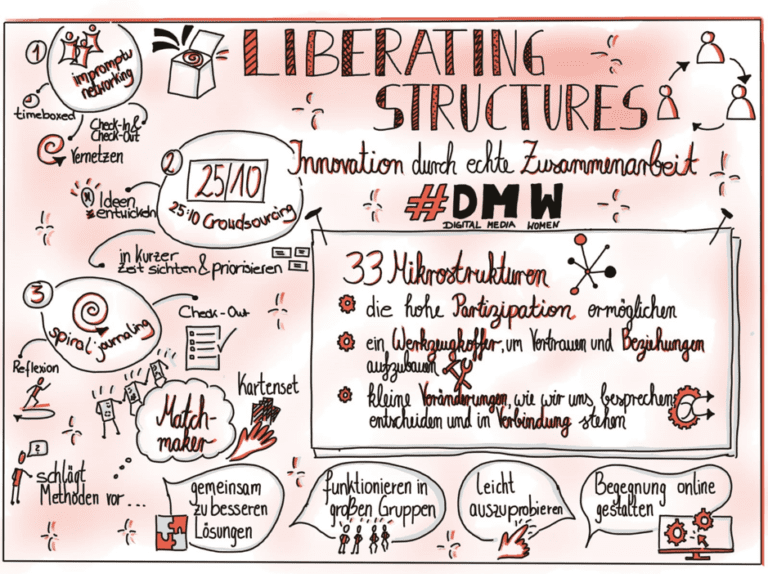 LIBERATING
STRUCTURES
Innovation durch echte Zusammenarbeit
#DMW
DIGITAL MEDIA WOMEN
1
impromptu
networking
timeboxed
Check-In &
Check-Out
Vernetzen
2
25/10
25:10 Croudsourcing
Ideen
entwickeln
in kurzer
Zeit sichten & priorisieren
3
spiral journaling
Check-Out
Reflexion
Match-
maker
Kartenset
schlägt
Methoden vor...
33 Mikrostrukturen
die hohe Partizipation ermöglichen
ein Werkzeugkoffer, um Vertrauen und Beziehungen
aufzubauen
kleine Veränderungen, wie wir uns besprechen,
entscheiden und in Verbindung stehen
gemeinsam
zu besseren
Lösungen
funktionieren in
großen Gruppen
Leicht
auszuprobieren
Begegnung online
gestalten